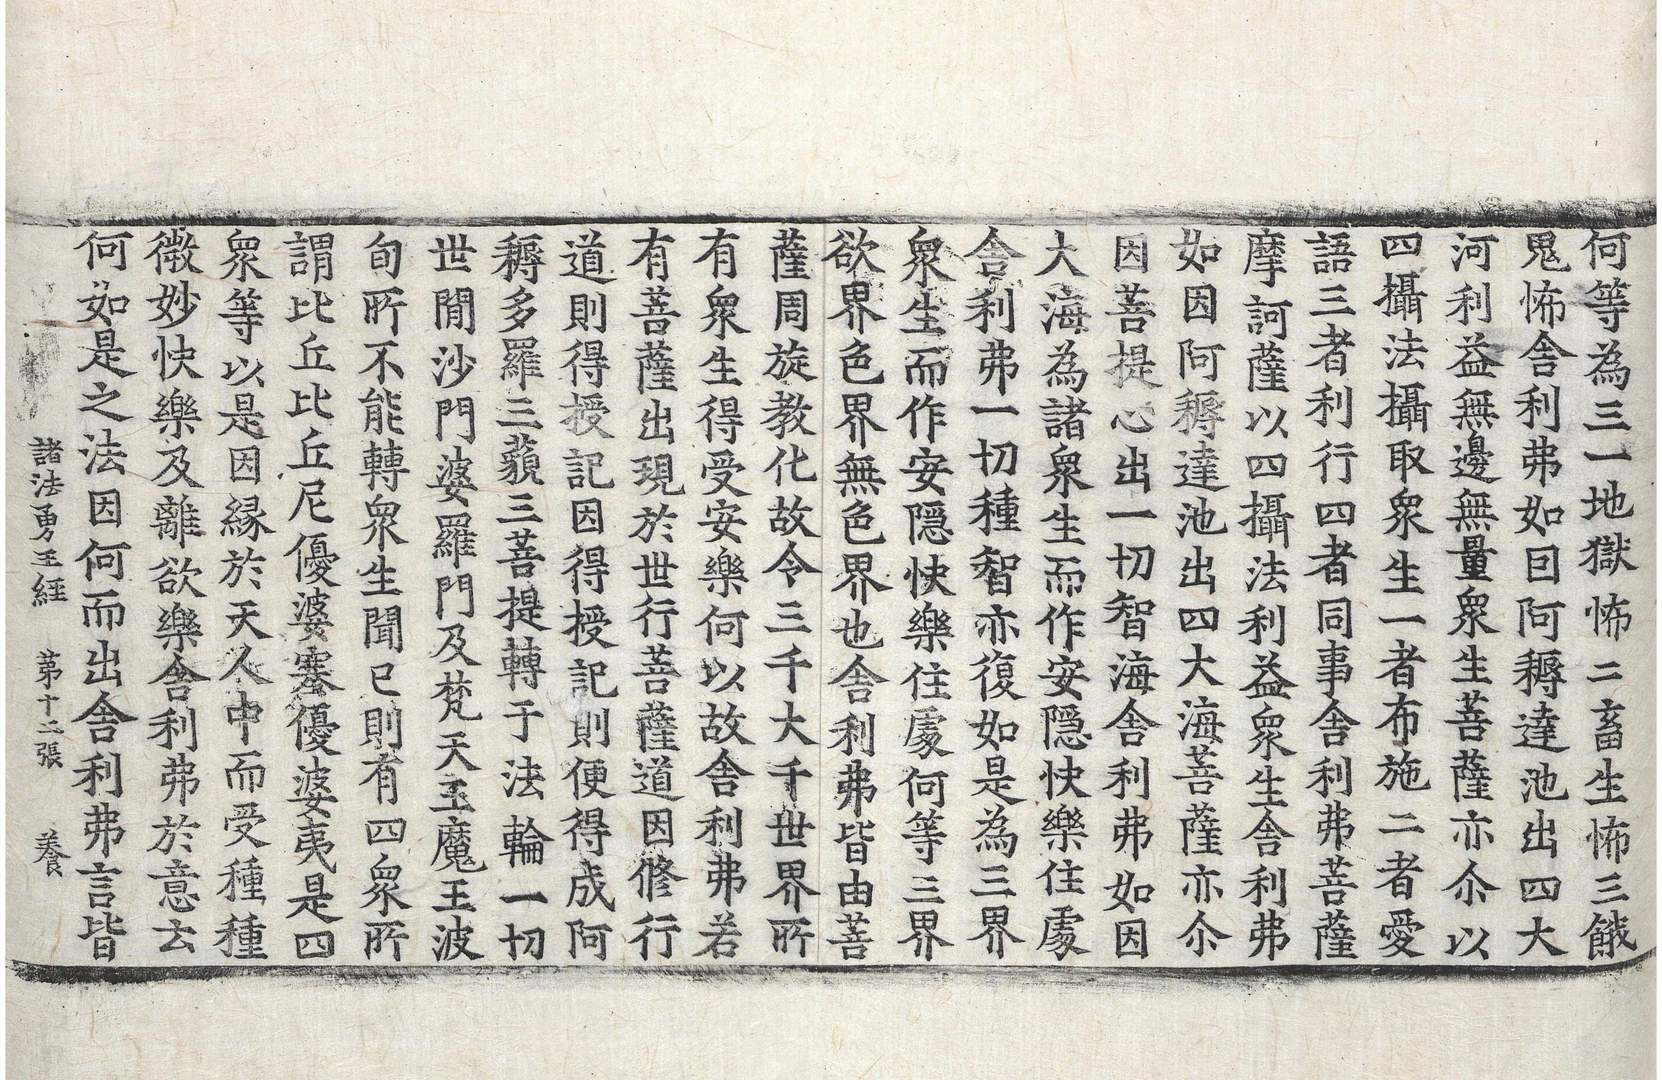 何等為三一地獄怖二畜生怖三餓
鬼怖舍利弗如因阿耨達池出四大
河利益無邊無量衆生菩薩亦尒以
四攝法攝取衆生一者布施二者愛
語三者利行四者同事舍利弗菩薩
摩訶薩以四攝法利益衆生舍利弗
如因阿耨達池出四大海菩薩亦尒
因菩提心出一切智海舍利弗如因
大海為諸衆生而作安隱快樂住處
舍利弗一切種智亦復如是為三界
衆生而作安隱快樂住處何等三界
欲界色界無色界也舍利弗皆由菩
薩周旋教化故令三千大千世界所
有衆生得受安樂何以故舍利弗若
有菩薩出現於世行菩薩道因修行
道則得授記因得授記則便得成阿
耨多羅三藐三菩提轉于法輪一切
世間沙門婆羅門及梵天王魔王波
旬所不能轉衆生聞已則有四衆所
謂比丘比丘尼優婆塞優婆夷是四
衆等以是因緣於天人中而受種種
微妙快樂及離欲樂舍利弗於意云
何如是之法因何而出舍利弗言皆
諸法勇王經 第十二張 養